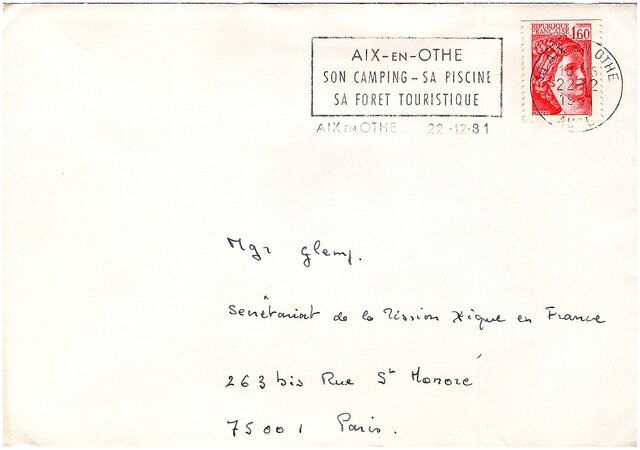 AIX-EN-OTHE
SON CAMPING - SA PISCINE
SA FORET TOURISTIQUE
AIX EN OTHE 22-12-81
REPUBLIQUE FRANÇAISE 1,60
OTHE
22-12
19
AUBE
POSTES
Mgr Glemp.
Secrétariat de la Mission Xique en France
263 bis Rue St Honoré
75001 Paris.